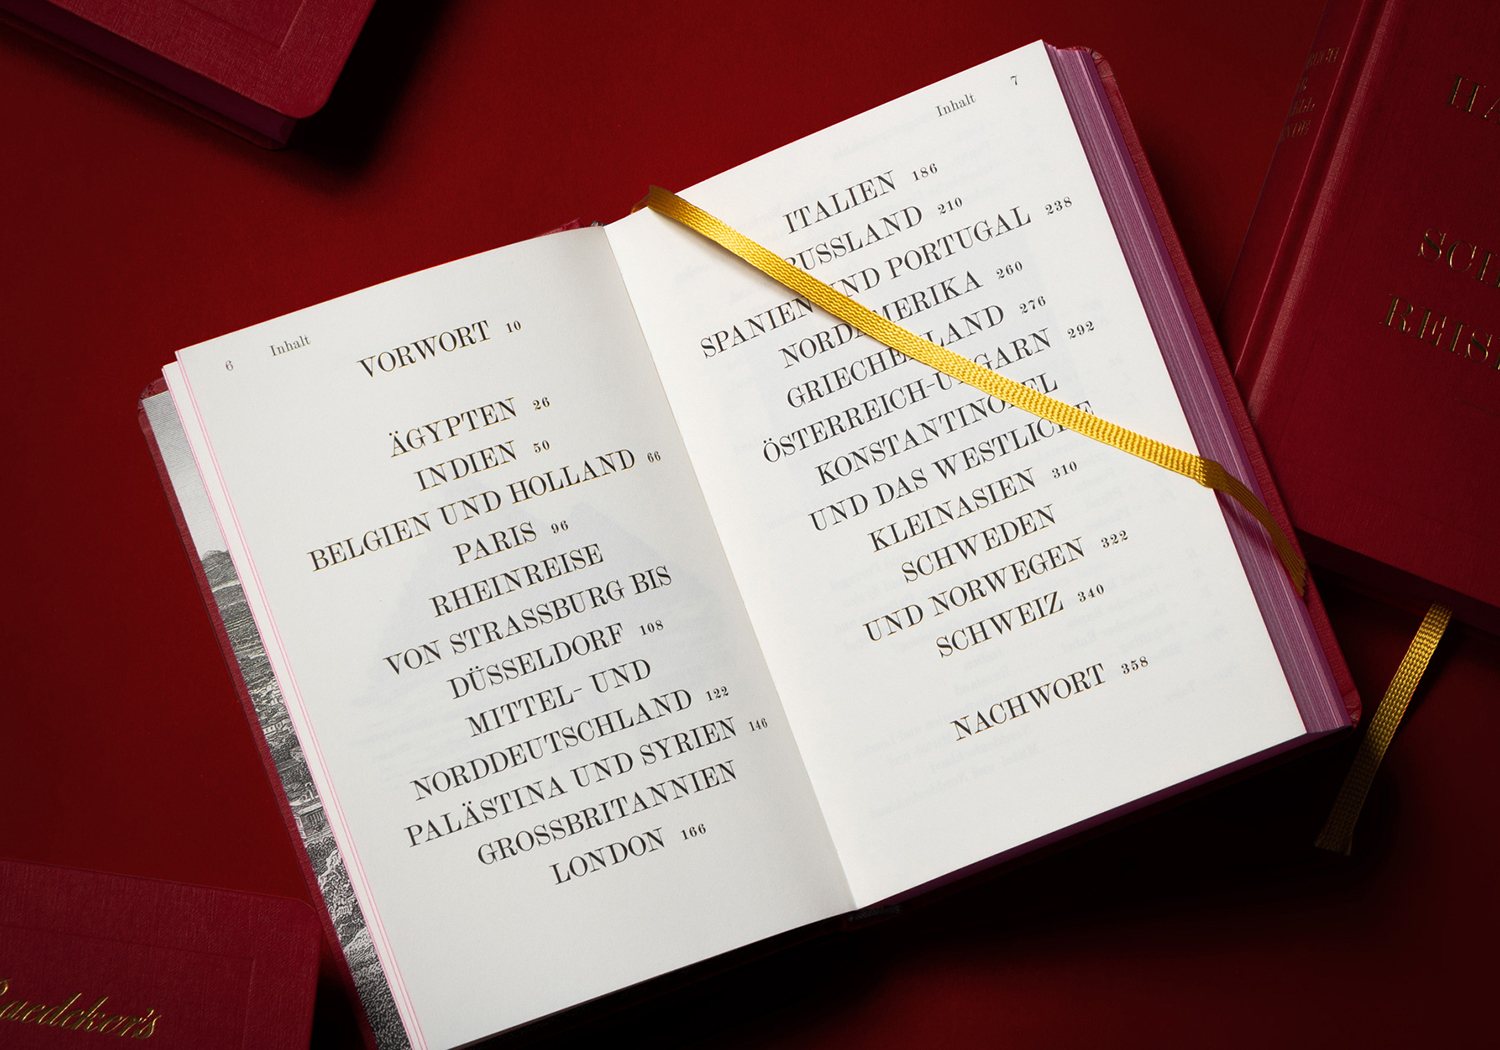 6 Inhalt
VORWORT 10
ÄGYPTEN 26
INDIEN 50
BELGIEN UND HOLLAND 66
PARIS 96
RHEINREISE
VON STRASSBURG BIS
DÜSSELDORF 108
MITTEL- UND
NORDDEUTSCHLAND 122
PALÄSTINA UND SYRIEN 146
GROSSBRITANNIEN
LONDON 166
Inhalt 7
ITALIEN 186
RUSSLAND 210
SPANIEN UND PORTUGAL 238
NORDAMERIKA 260
GRIECHENLAND 276
ÖSTERREICH-UNGARN 292
KONSTANTINOPEL
UND DAS WESTLICHE
KLEINASIEN 310
SCHWEDEN
UND NORWEGEN 322
SCHWEIZ 340
NACHWORT 358
Baedeker's